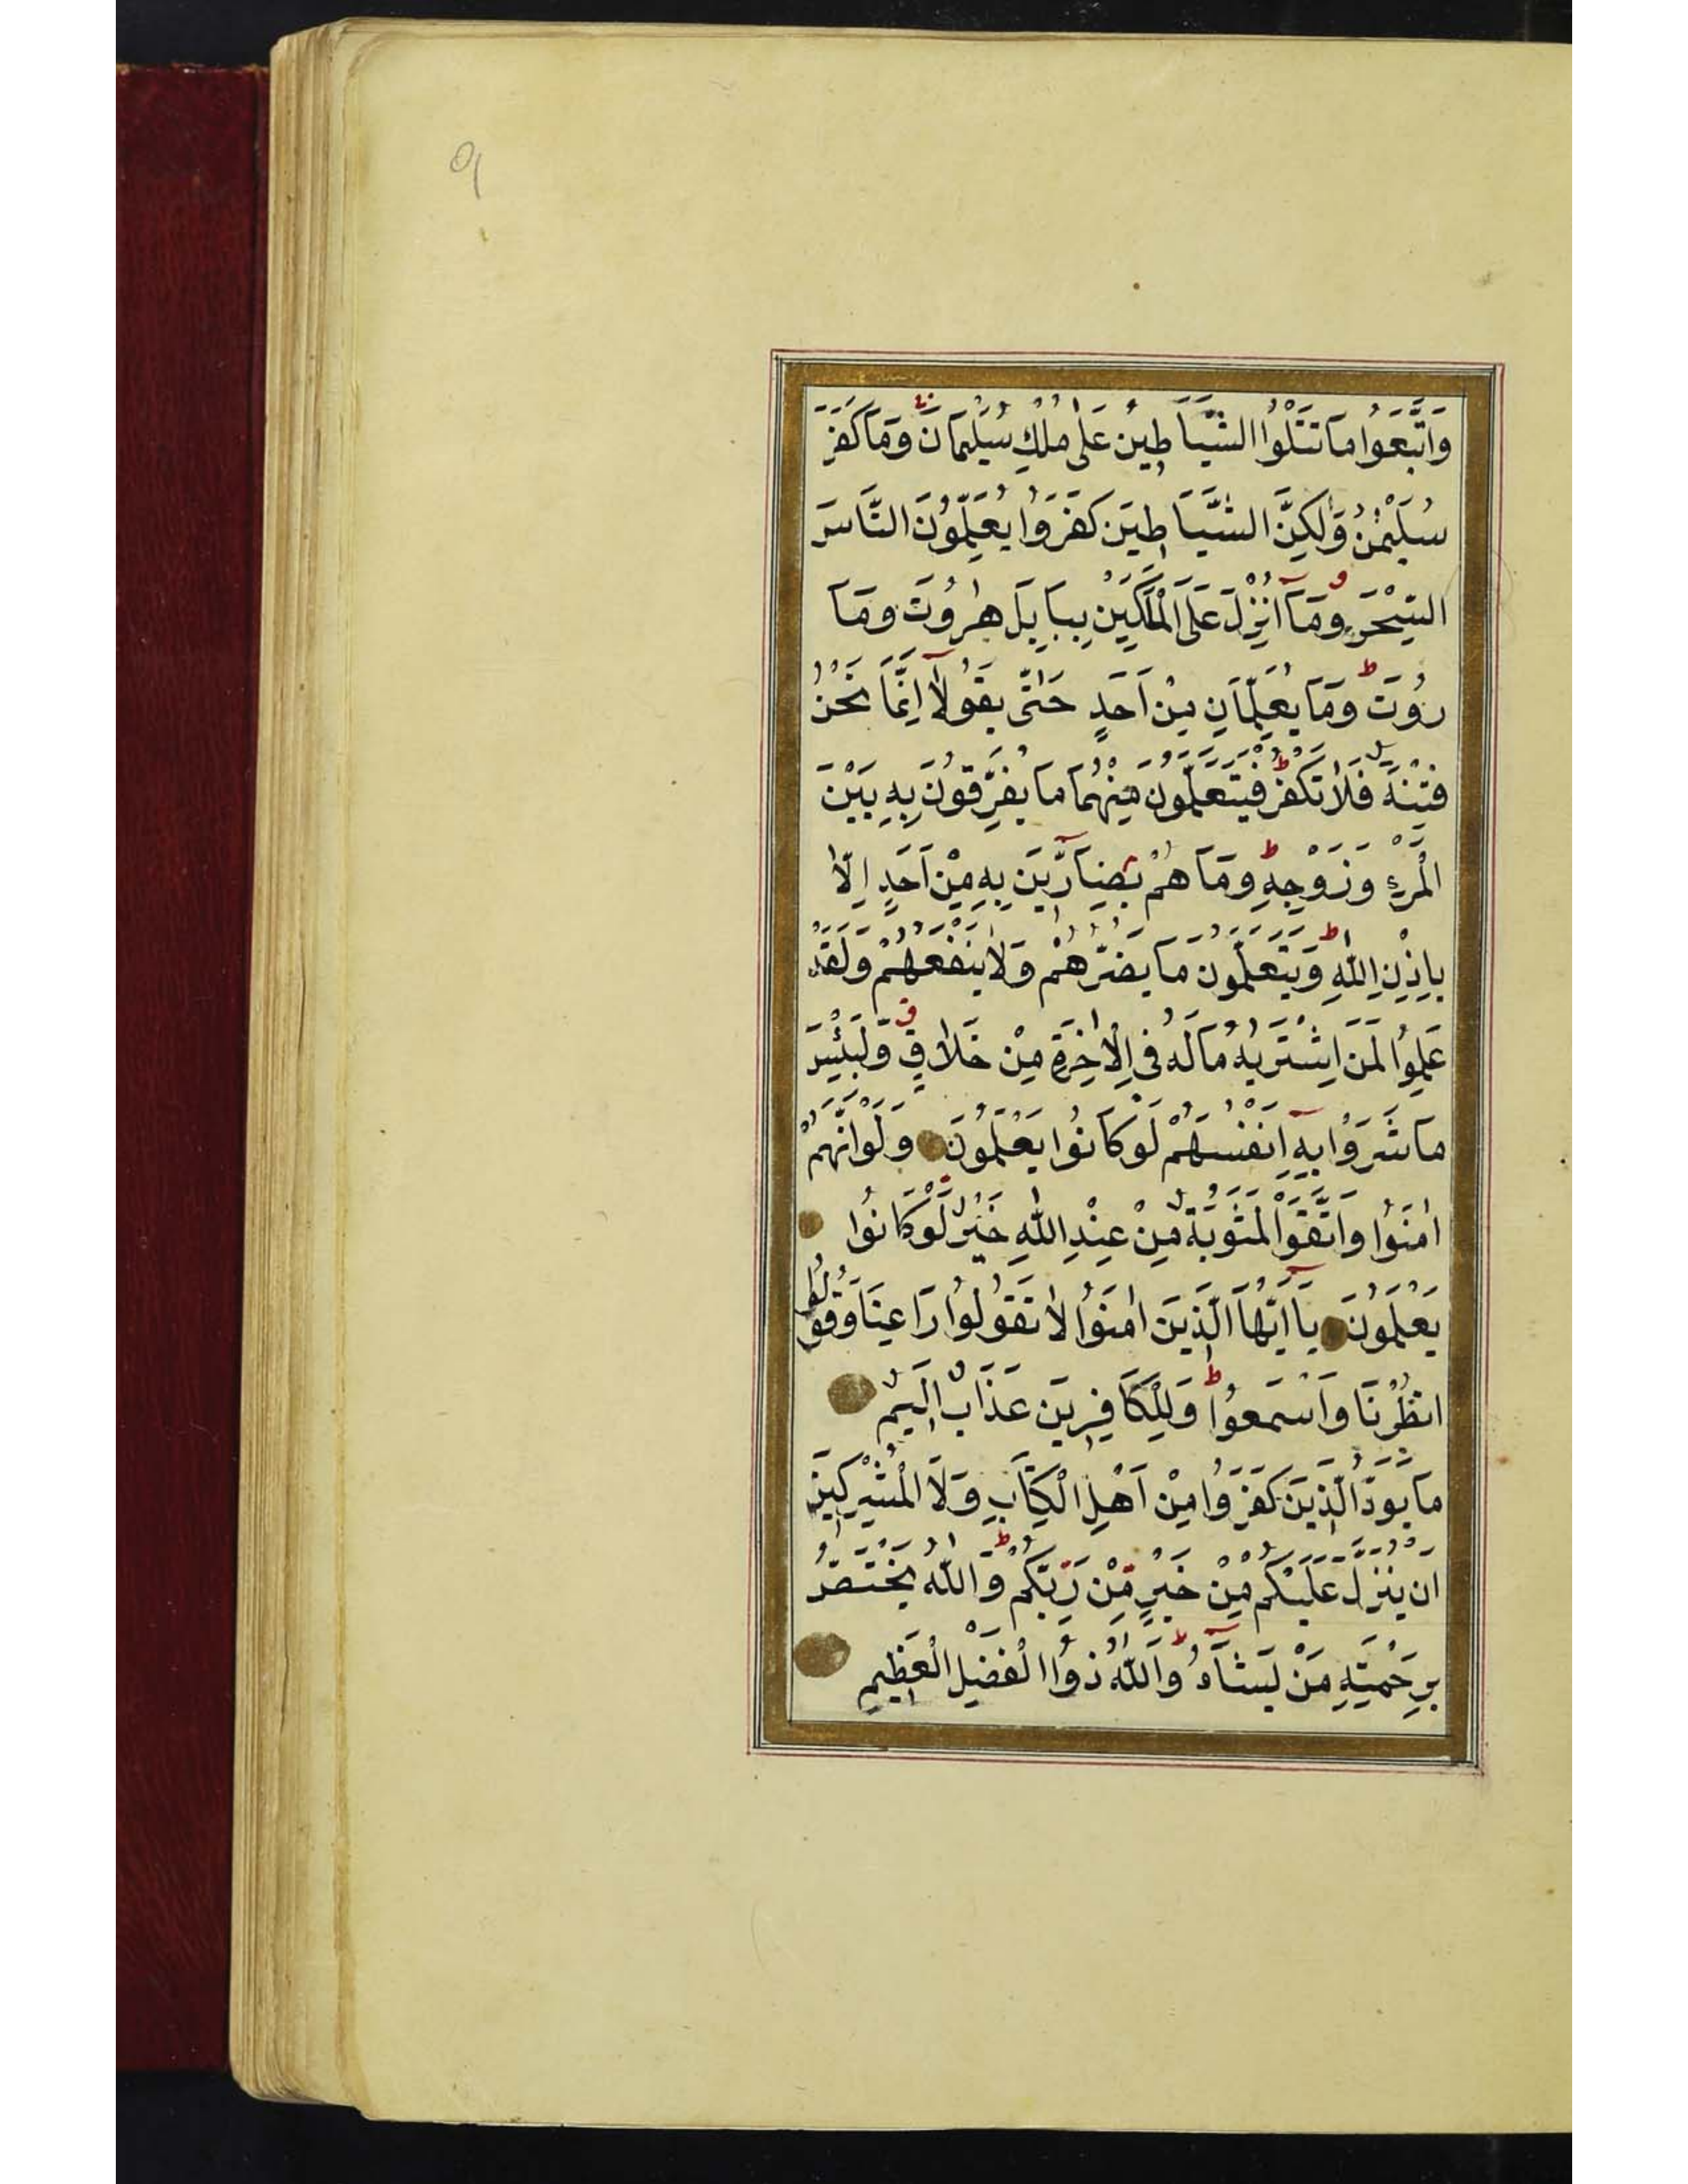 9
وَاتَّبَعُوا مَا تَتْلُوا الشَّيَاطِينُ عَلَى مُلْكِ سُلَيْمَانَ وَمَا كَفَرَ
سُلَيْمٰنُ وَلٰكِنَّ الشَّيَاطِينَ كَفَرُوا يُعَلِّمُونَ النَّاسَ
السِّحْرَ وَمَآ اُنْزِلَ عَلَى الْمَلَكَيْنِ بِبَابِلَ هٰرُوتَ وَمَا
رُوتَ ط وَمَا يُعَلِّمَانِ مِنْ اَحَدٍ حَتّٰى يَقُولَآ اِنَّمَا نَحْنُ
فِتْنَةٌ فَلَا تَكْفُرْ ط فَيَتَعَلَّمُونَ مِنْهُمَا مَا يُفَرِّقُونَ بِهِ بَيْنَ
الْمَرْءِ وَزَوْجِهِ ط وَمَا هُمْ بِضَآرِّينَ بِهِ مِنْ اَحَدٍ اِلَّا
بِاِذْنِ اللّٰهِ ط وَيَتَعَلَّمُونَ مَا يَضُرُّهُمْ وَلَا يَنْفَعُهُمْ وَلَقَدْ
عَلِمُوا لَمَنِ اشْتَرٰيهُ مَا لَهُ فِى الْاٰخِرَةِ مِنْ خَلَاقٍ ق وَلَبِئْسَ
مَا شَرَوْا بِهِٓ اَنْفُسَهُمْ لَوْ كَانُوا يَعْلَمُونَ وَلَوْ اَنَّهُمْ
اٰمَنُوا وَاتَّقَوْا لَمَثُوبَةٌ مِنْ عِنْدِ اللّٰهِ خَيْرٌ لَوْ كَانُوا
يَعْلَمُونَ يَآ اَيُّهَا الَّذِينَ اٰمَنُوا لَا تَقُولُوا رَاعِنَا وَقُولُوا
انْظُرْنَا وَاسْمَعُوا ط وَلِلْكَافِرِينَ عَذَابٌ اَلِيمٌ
مَا يَوَدُّ الَّذِينَ كَفَرُوا مِنْ اَهْلِ الْكِتَابِ وَلَا الْمُشْرِكِينَ
اَنْ يُنَزَّلَ عَلَيْكُمْ مِنْ خَيْرٍ مِنْ رَبِّكُمْ ط وَاللّٰهُ يَخْتَصُّ
بِرَحْمَتِهِ مَنْ يَشَآءُ ط وَاللّٰهُ ذُوا الْفَضْلِ الْعَظِيمِ